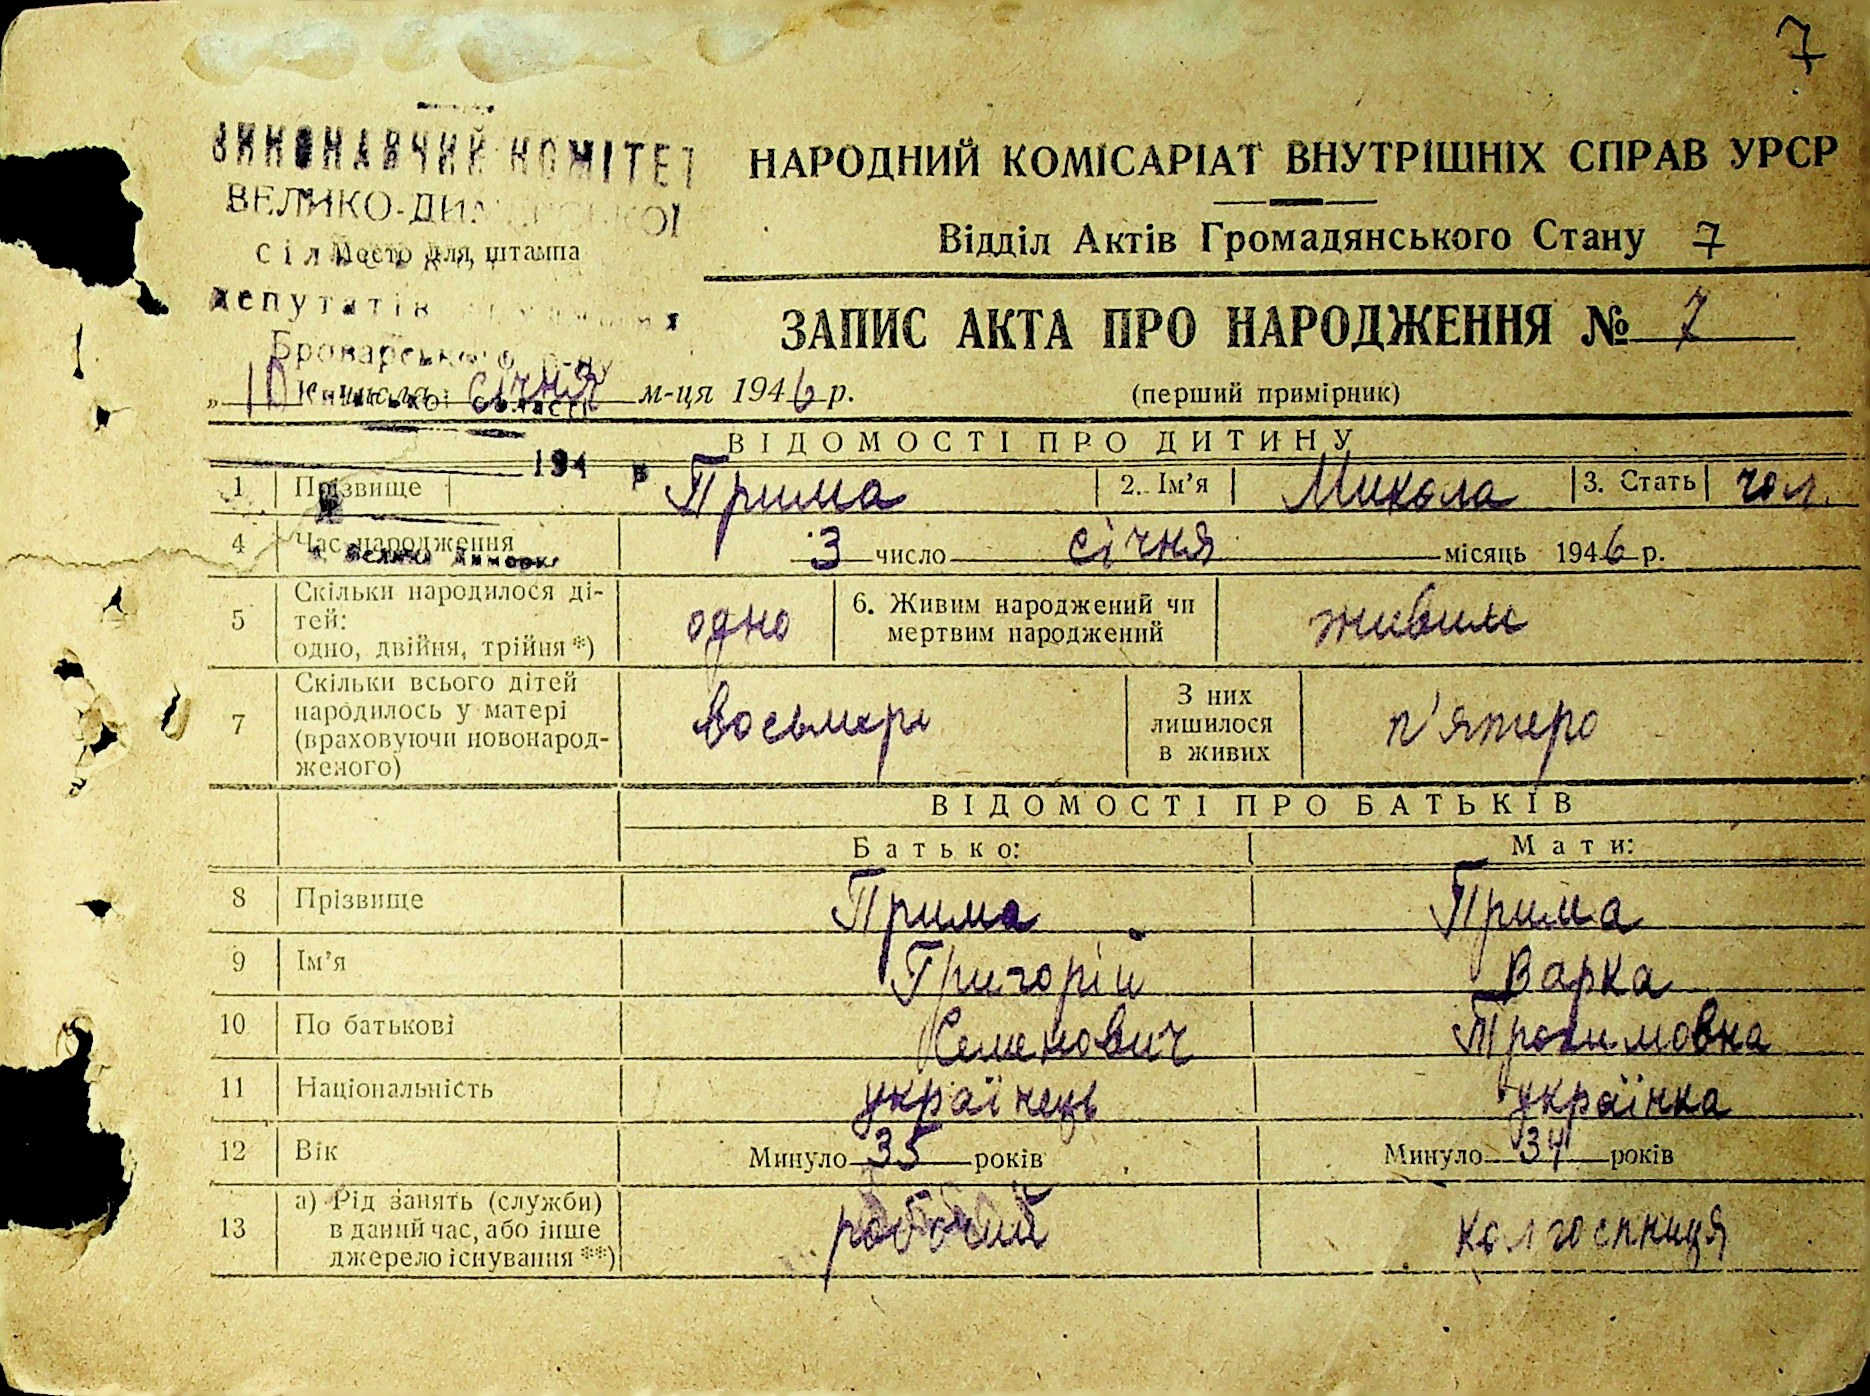 7
ВИКОНАВЧИЙ КОМІТЕТ
ВЕЛИКО-
Место для штампа
депутатів
Броварського р-ну
НАРОДНИЙ КОМІСАРІАТ ВНУТРІШНІХ СПРАВ УРСР
Відділ Актів Громадянського Стану 7
ЗАПИС АКТА ПРО НАРОДЖЕННЯ № 7
„ 10 числа січня м-ця 1946 р. (перший примірник)
ВІДОМОСТІ ПРО ДИТИНУ
194 р
1 Прізвище Прима 2. Ім'я Микола 3. Стать чол.
4 Час народження 3 число січня місяць 1946 р.
с. Велика Димерка
5 Скільки народилося ді-
тей:
одно, двійня, трійня *) одно 6. Живим народжений чи
мертвим народжений живим
7 Скільки всього дітей
народилось у матері
(враховуючи новонарод-
женого) восьмеро З них
лишилося
в живих п'ятеро
ВІДОМОСТІ ПРО БАТЬКІВ
Батько: Мати:
8 Прізвище Прима Прима
9 Ім'я Григорій Варка
10 По батькові Семенович Трохимовна
11 Національність українець українка
12 Вік Минуло 35 років Минуло 34 років
13 а) Рід занять (служби)
в даний час, або інше
джерело існування **) робочий колгоспниця